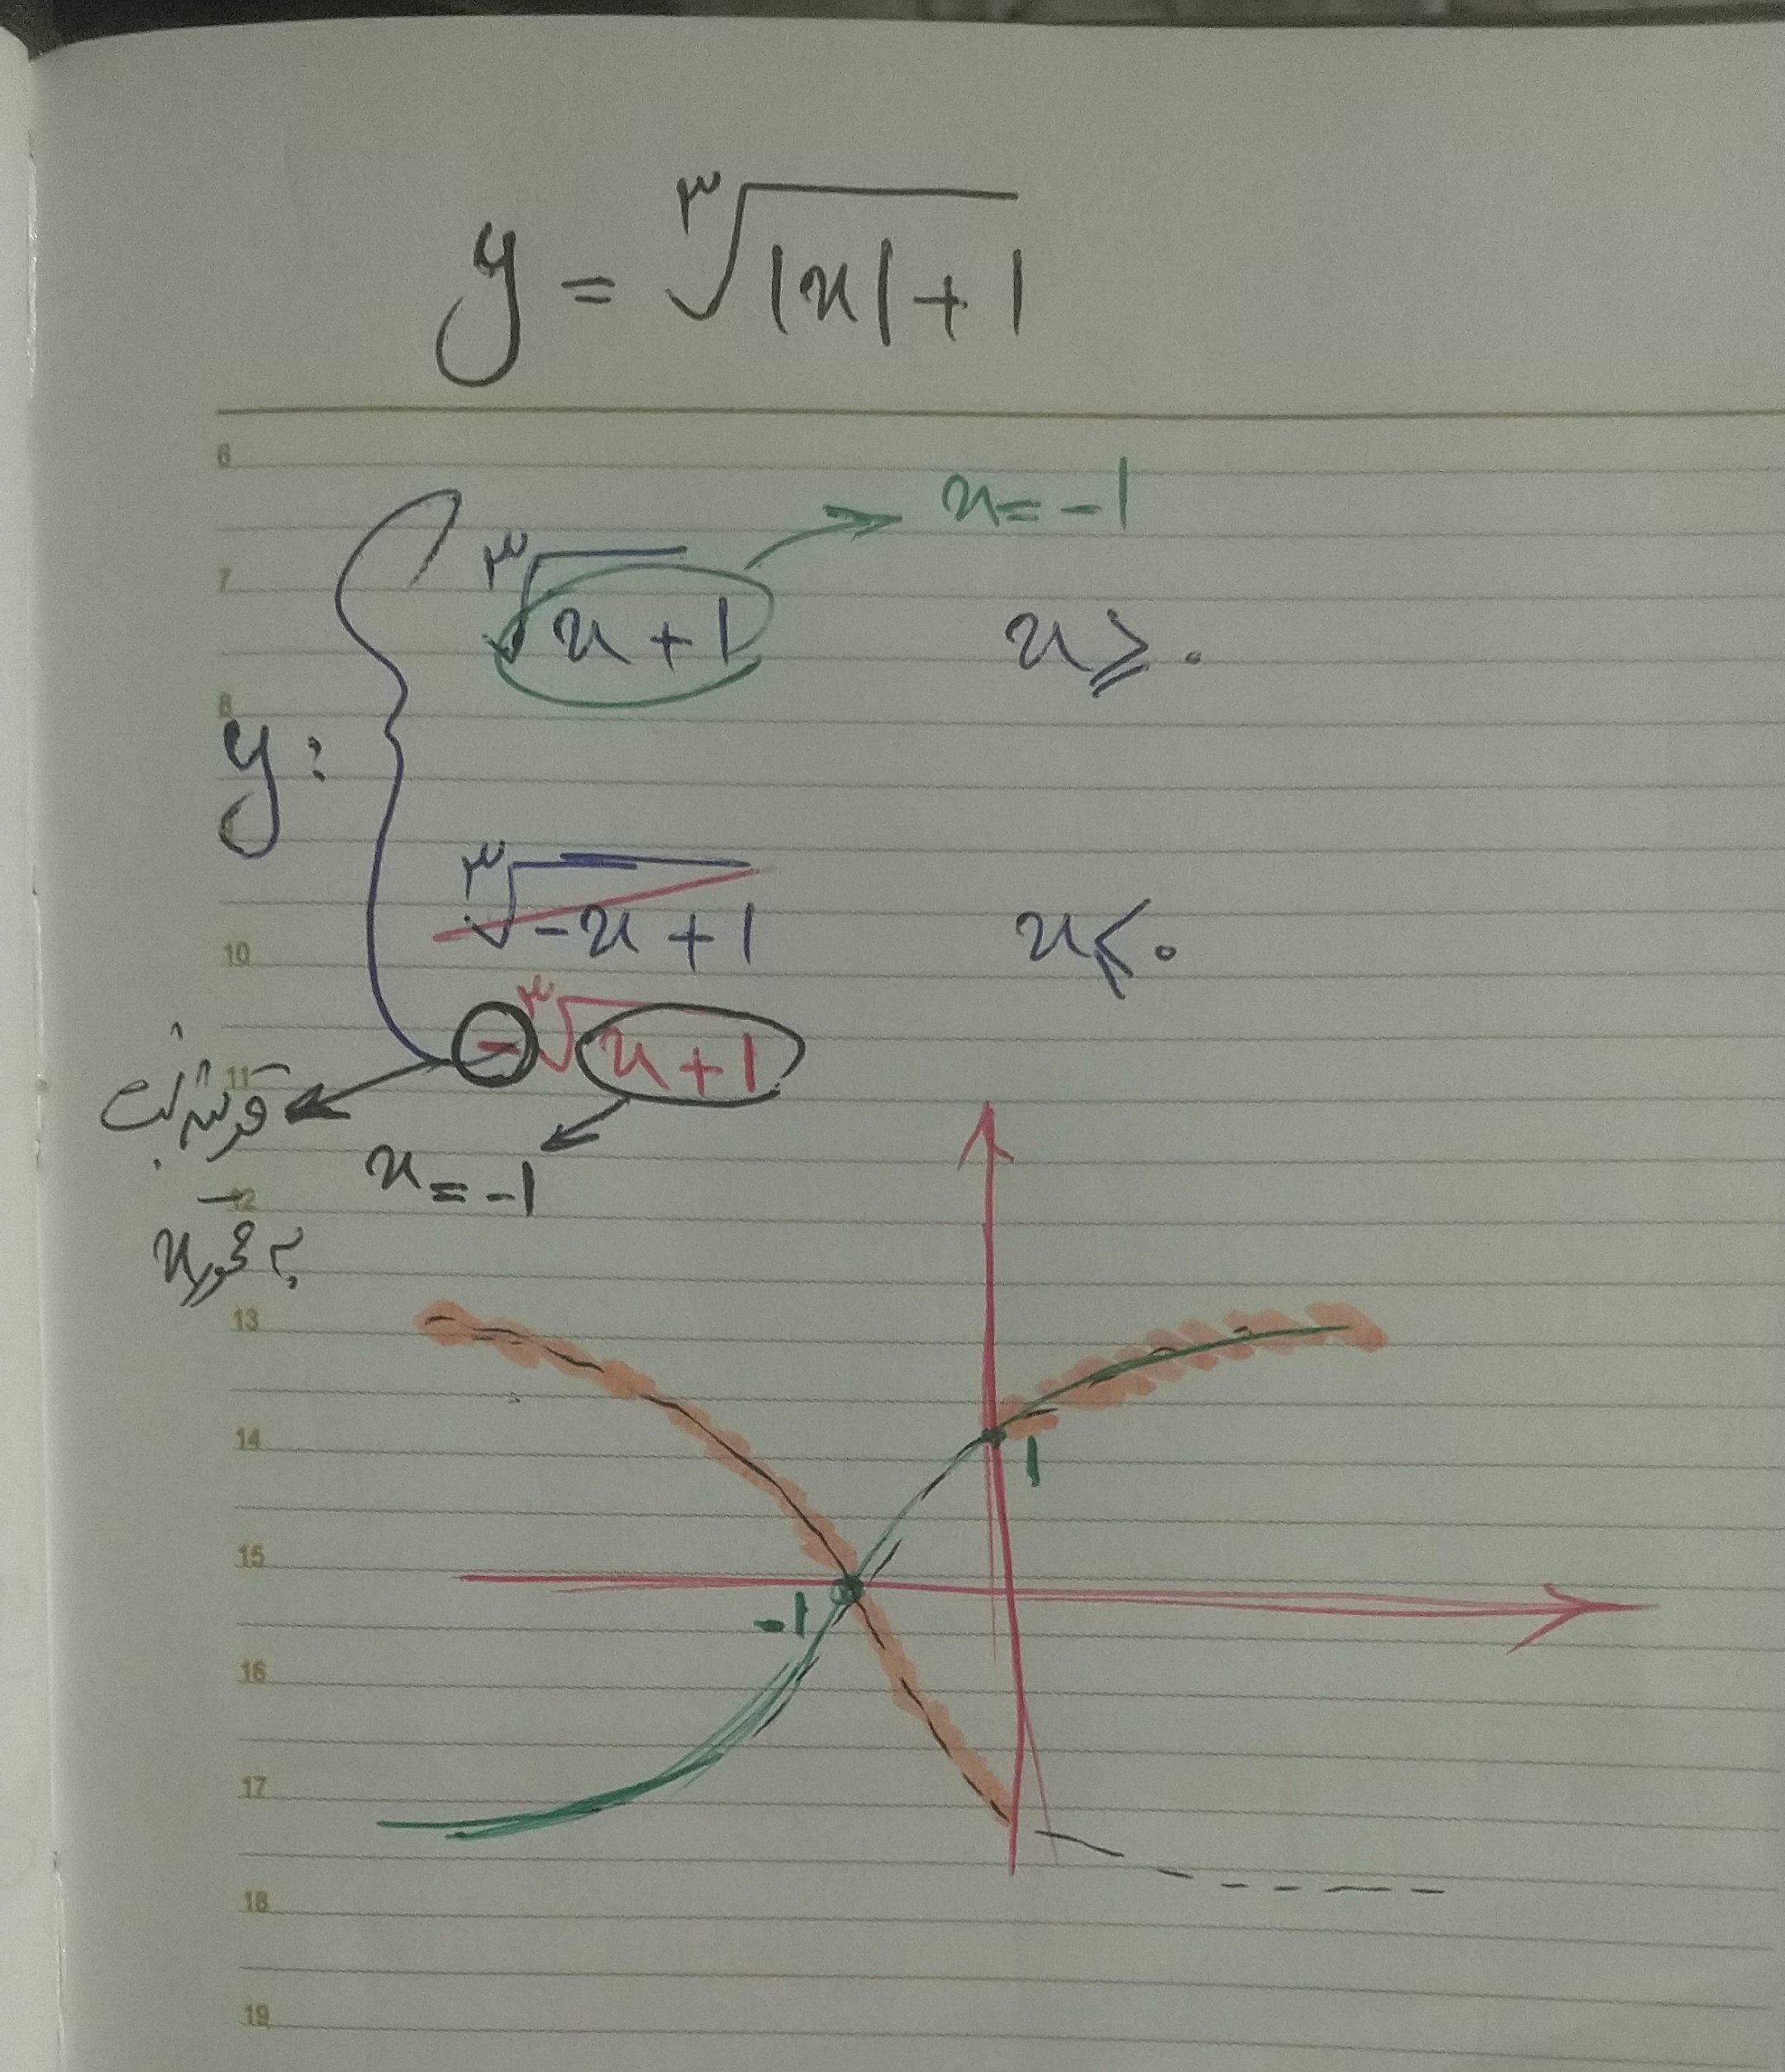 y = ∛|x|+1
6
x = -1
7
∛x+1 x ≥ ۰
8
y:
∛-x+1 x ≤ ۰
10
-∛x+1
11
قرینه نسبت
x = -1
12
به محور x
13
14
1
15
-1
16
17
18
19